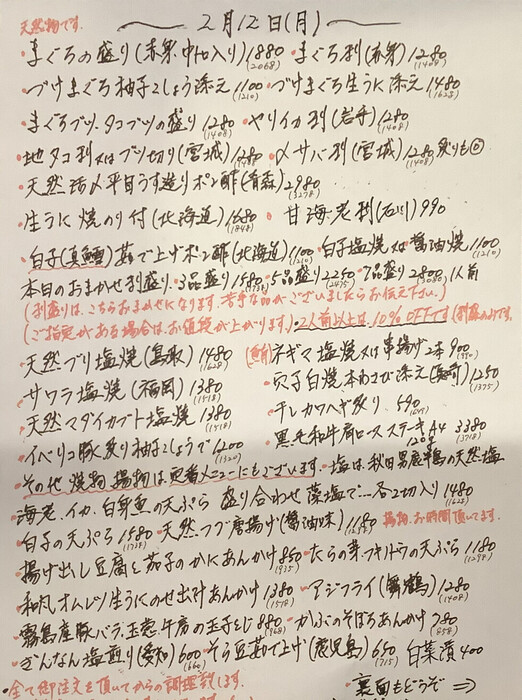 天然物です。
2月12日(月)
・まぐろの盛り(赤身、中トロ入り)1880(2068) ・まぐろ刺(赤身)1280(1408)
・づけまぐろ柚子こしょう添え1100(1210) ・づけまぐろ生うに添え1480(1628)
・まぐろブツ、タコブツの盛り1280(1408) ・ヤリイカ刺(岩手)1280(1408)
・地タコ刺又はブツ切り(宮城)1280(1408) ・〆サバ刺(宮城)1280(1408)炙りも◎
・天然活〆平目うす造りポン酢(青森)2980(3278)
・生うに焼のり付(北海道)1680(1848) ・甘海老刺(石川)990
・白子(真鱈)茹で上げポン酢(北海道)1100(1210) ・白子塩焼又は醤油焼1100(1210)
本日のおまかせ刺盛り、3品盛り1580(1738) 5品盛り2250(2475) 7品盛り2800(3080) 1人前
(刺盛りは、こちらおまかせになります。苦手な品がございましたらお伝え下さい。)
(ご指定がある場合はお値段が上がります。)・2人前以上は、10%OFFです(刺盛のみです。
・天然ブリ塩焼(鳥取)1480(1628) ・ネギマ塩焼又は串揚げ2本900(990)
・サワラ塩焼(福岡)1380(1518) ・穴子白焼本わさび添え(長崎)1250(1375)
・天然マダイカブト塩焼1380(1518) ・干しカワハギ炙り590(649)
・イベリコ豚炙り柚子こしょうで1200(1320) ・黒毛和牛肩ロースステーキA4 120g 3380(3718)
・その他焼物、揚物は定番メニューにもございます。・塩は、秋田男鹿半島の天然塩
・海老、イカ、白身魚の天ぷら盛り合わせ藻塩で…各2切入り1480(1628)
・白子の天ぷら1580(1738) ・天然フグ唐揚げ(醤油味)1280 揚物、お時間頂いてます。
・揚げ出し豆腐と茄子のかにあんかけ850(935) ・たらの芽、フキノトウの天ぷら1180(1298)
・和風オムレツ生うにのせ出汁あんかけ1380(1518) ・アジフライ(舞鶴)1280(1408)
・霧島産豚バラ、玉葱、牛蒡の玉子とじ880(968) ・かぶのそぼろあんかけ780(858)
・ぎんなん塩煎り(愛知)600(660) ・そら豆茹で上げ(鹿児島)650(715) 白菜漬400
・全て御注文を頂いてからの調理致します。 ・裏面もどうぞ⇒